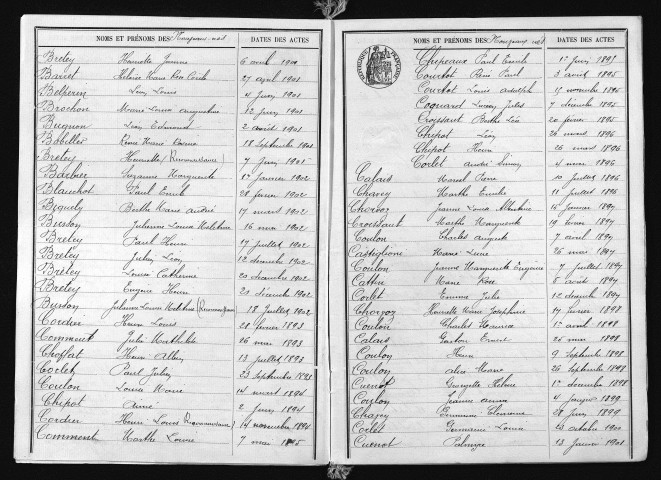 NOMS ET PRÉNOMS DES Nouveaux-nés DATES DES ACTES
Bretey Henriette Jeanne 6 avril 1900
Barret 27 avril 1901
Belperin Léon Louis 4 juin 1901
Brochon Marie Louise Augustine 12 juin 1901
Bugnon Léon Edmond 2 août 1901
Bobillet René Marie 18 septembre 1901
Bretey Henriette (Reconnaissance) 7 juin 1901
Barbier Suzanne Marguerite 1er janvier 1902
Blanchot Paul Emile 28 février 1902
Berthe Marie André 17 mars 1902
Busson Julienne Louise 16 mai 1902
Bretey Paul Henri 17 juillet 1902
Bretey Julien Léon 12 décembre 1902
Bretey Louise Catherine 20 décembre 1902
Bretey Eugène Henri 20 décembre 1902
Busson Julienne Louise (Reconnaissance) 18 juillet 1902
Cordier Henri Louis 28 février 1893
Comment Julie Mathilde 26 mai 1893
Choffat Henri Albert 13 juillet 1893
Corlet Paul Julien 23 septembre 1893
Coulon Louise Marie 14 mars 1894
Chipot Aimé 2 juin 1894
Cordier Henri Louis (Reconnaissance) 14 novembre 1894
Comment Marthe Louise 7 mai 1895
NOMS ET PRÉNOMS DES Nouveaux-nés DATES DES ACTES
RÉPUBLIQUE FRANÇAISE
Chipeaux Paul Emile 1er juin 1895
Courtot René Paul 3 août 1895
Courtot Louis Adolphe 15 novembre 1895
Coquard Lucien Jules 7 décembre 1895
Croissant Berthe Léa 20 février 1895
Chipot Léon 26 mars 1896
Chipot Henri 26 mars 1896
Corlet André 4 mai 1896
Calais Marcel Pierre 10 juillet 1896
Charey Marthe Emilie 11 juillet 1896
Jeanne Louise Albertine 15 janvier 1897
Croissant Marthe Marguerite 19 février 1897
Coulon Charles Auguste 7 avril 1897
Castiglione Marie Lucie 26 mai 1897
Coulon Jeanne Marguerite Eugénie 7 juillet 1897
Cattin Marie Rose 8 août 1897
Corlet Emma Julie 12 décembre 1897
Henriette Marie Joséphine 17 février 1898
Coulon Charles Maurice 1er avril 1898
Calais Gaston Ernest 26 mai 1898
Coulon Henri 9 septembre 1898
Coulon Alice Marie 26 septembre 1898
Cuenot Georgette Hélène 1er décembre 1898
Coulon Jeanne 4 janvier 1899
Charey Clémence 28 juin 1899
Corlet Germaine Louise 23 octobre 1900
Cuenot Palmyre 13 janvier 1901